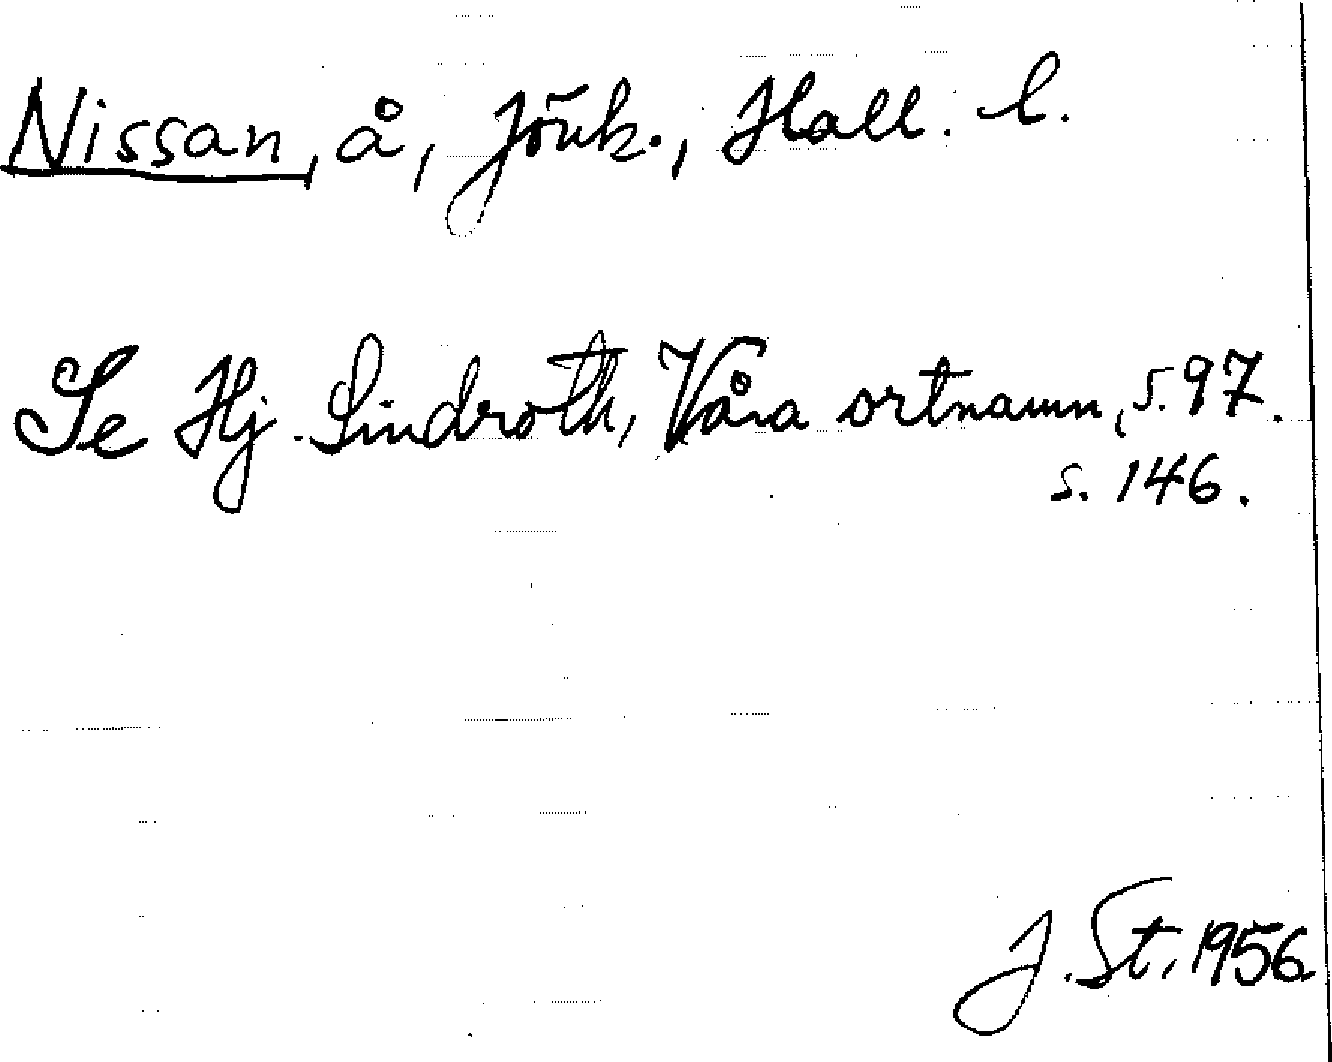 Nissan, å, Jönk., Hall. l.
Se Hj. Lindroth, Våra ortnamn, s. 97.
s. 146.
J. St. 1956